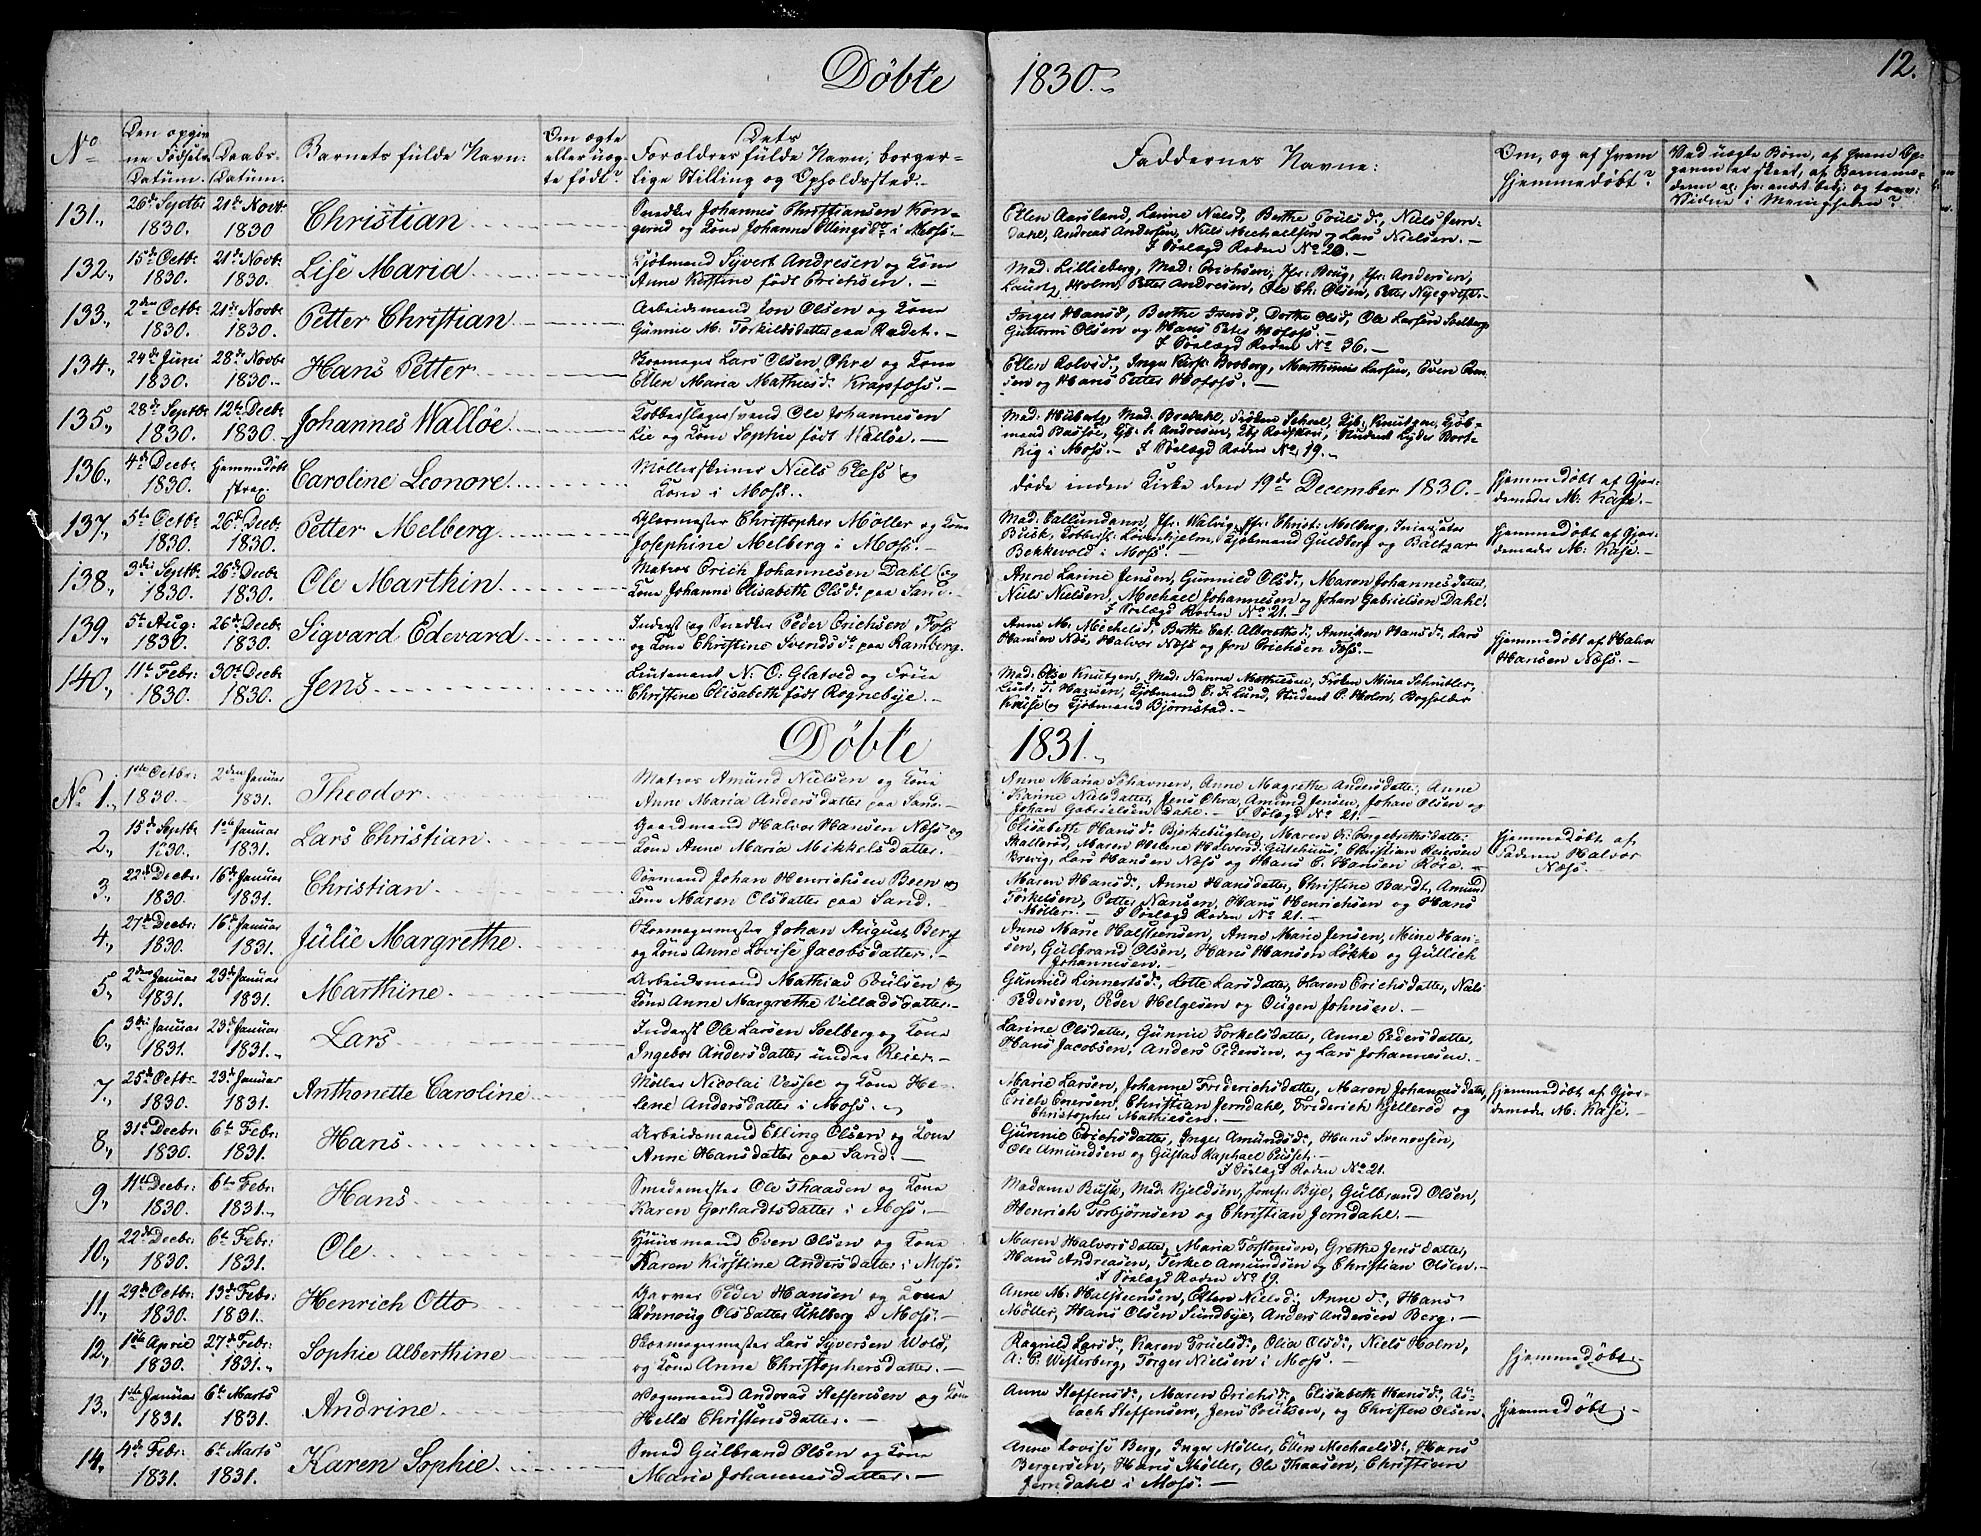 Døbte 1830. 12.
No
Den opgivne Fødsels Datum.
Daabs-Datum.
Barnets fulde Navn:
Om ægte eller uægte født?
Dets Forældres fulde Navn, borgerlige Stilling og Opholdssted.
Faddernes Navne:
Om, og af hvem hjemmedøbt?
131., 26de Septbr 1830. 21de Novbr 1830 Christian
Snedker Johannes Christiansen
og Kone Johanne Ellingsdr i Moss.
Ellen Aarsland, Larine Nielsd, Berthe Poulsdr, Niels Jern-
dahl, Andreas Andersen, Niels Mechaelsen og Lars Nielsen.
I Sølægd Roden No 20.
132., 15de Octbr 1830. 21de Novbr 1830. Lise Maria
Kjøbmand Syvert Andresen og Kone
Anne Kirstine født Erichsen.
Mad: Lillieberg, Mad: Erichsen, Jfr: Brug, Jfr: Andersen,
Holm, Petter Andresen, Ole Ch: Olsen, Petter
133., 2den Octbr 1830. 21de Novbr 1830. Petter Christian
Arbeidsmand Jon Olsen og Kone
Gunnie M: Torkildsdatter paa Rødet.
Inger Hansd, Berthe Iversd, Dorthe Olsd, Ole Larsen Soelberg
Guttorm Olsen og Hans Peter Hofoss.
I Sølægd Roden No 36.
134., 24de Juni 1830. 28de Novbr 1830. Hans Petter
Skomager Lars Olsen Ohre og Kone
Ellen Maria Mathiesdr Krapfoss.
Ellen Rolvsdr, Inger Kirst: Broberg, Marthinus Larsen, Even
og Hans Petter Hofoss.
135., 28de Septbr 1830. 12te Decbr 1830. Johannes Walløe
Kobberslagersvend Ole Johannesen
Lie og Kone Sophie født Walløe.
i Moss. I Sølægd Roden No 19.
136., 4de Decbr 1830. hjemmedøbt strax. Caroline Leonore
Niels Pless og
Kone i Moss.
døde inden Kirke den 19de December 1830.
Hjemmedøbt af Gjor-
demoder M: Kase.
137., 5te Octbr 1830. 26de Decbr 1830. Petter Melberg
Christopher Møller og Kone
Josephine Melberg i Moss.
Mad: Callundann, Jfr: Walvig, Jfr: Christ: Melberg,
Busk, Løvenhjelm, Kjøbmand Guldberg og Baltzar
Bekkevold i Moss.
Hjemmedøbt af Gjor-
demoder M: Kase.
138., 3die Septbr 1830. 26de Decbr 1830. Ole Marthin
Matros Erich Johannesen Dahl og
Kone Johanne Elisabeth Olsdr paa Sand.
Anne Larine Jensen, Gunnild Olsdr, Maren Johannesdatter,
Niels Nielsen, Mechael Johannesen og Johan Gabrielsen Dahl.
I Sølægd Roden No 21.
139., 5te Aug: 1830. 26de Decbr 1830. Sigvard Edevard
Inderst og Snedker Peder Erichsen Foss
og Kone Christine Svendsdr paa Ramberg.
Anne M: Michelsd, Berthe Cat: Albrethsdr, Anniken Hansdr, Lars
Hansen Næs, Halvor Næss og Jon Erichsen Foss.
Hjemmedøbt af Halvor
Hansen Næss.
140., 11te Febr: 1830. 30te Decbr 1830. Jens
Lieutenant N: O: Glatved og Frue
Christine Elisabeth født Rognebye.
Mad: Else Knutzen, Mad: Nanna Mathiesen, Frøken Mina Schnitler,
Lieut: T: Hansen, Kjøbmand C: F: Lund, Student P: Holm, Bogholder
Kruse og Kjøbmand Bjørnstad.
Døbte 1831.
No 1., 1ste Octbr: 1830. 2den Januar 1831. Theodor
Matros Amund Nielsen og Kone
Anne Maria Andersdatter paa Sand.
Anne Maria Søhavnen, Anne Magrethe Andersdatter, Anne
Karine Nielsdatter, Jens Ohra, Amund Jensen, Johan Olsen og
Johan Gabrielsen Dahl. I Sølægd No 21.
2., 15de Septbr 1830. 1ste Januar 1831. Lars Christian
Gaardmand Halvor Hansen Næss og
Kone Anne Maria Mikkelsdatter.
Elisabeth Hansdr Bjerkebugten, Maren Ingebrethsdatter
Skallerød, Maren Helene Halvorsd: Gutehuus, Christian Reiersen
Brevig, Lars Hansen Næss og Hans C: Hansen Røra.
Hjemmedøbt af
Faderen Halvor
Næss.
3., 22de Decbr: 1830. 16de Januar 1831. Christian
Sømand Johan Henrichsen Boen og
Kone Maren Olsdatter paa Sand.
Maren Hansdr, Anne Hansdatter, Christine Bardt, Amund
Torkelsen, Petter Nansen, Hans Henrichsen og Hans
Møller. I Sølægd Roden No 21.
4., 27de Decbr: 1830. 16de Januar 1831. Julie Margrethe
Skomagermester Johan August Berg
og Kone Anne Lovise Jacobsdatter.
Anne Marie Halsteensen, Anne Marie Jensen, Mine Han-
sen, Gulbrand Olsen, Hans Hansen Løkke og Gullich
Johannesen.
5., 2den Januar 1831. 23de Januar 1831. Marthine
Arbeidsmand Mathias Poulsen og
Kone Anne Margrethe Villadsdatter.
Gunnild Linnertsdr, Lotte Larsdatter, Karen Erichsdatter, Niels
Pedersen, Peder Helgesen og Eugen Johnsen.
6., 3die Januar 1831. 23de Januar 1831. Lars
Inderst Ole Larsen Soelberg og Kone
Ingebor Andersdatter under Reier.
Larine Olsdatter, Gunnie Torkelsdatter, Anne Pedersdatter,
Hans Jacobsen, Anders Pedersen, og Lars Johannesen.
7., 25de Octbr 1830. 23de Januar 1831. Anthonette Caroline
Møller Nicolai Vessel og Kone He-
lene Andersdatter i Moss.
Marie Larsen, Johanne Friderichsdatter, Maren Johannesdatter,
Erich Enersen, Christian Jerndahl, Friderich Kjellerød og
Christopher Mathiesen.
Hjemmedøbt af Gjor-
demoder M: Kase.
8., 31te Decbr: 1830. 6te Febr: 1831. Hans
Arbeidsmand Elling Olsen og Kone
Anne Hansdatter paa Sand.
Gunnie Erichsdatter, Inger Amundsdr, Hans Svenersen,
Ole Amundsen og Gustav Raphael Pusset.
I Sølægd Roden No 21.
9., 11te Decbr: 1830. 6te Febr: 1831. Hans
Smedemester Ole Thaasen og Kone
Karen Gerhardtsdatter i Moss.
Madame Busk, Mad: Kjeldsen, Jomfr: Bye, Gulbrand Olsen,
Henrich Torbjørnsen og Christian Jerndahl.
10., 22de Decbr: 1830. 6te Febr: 1831. Ole
Huusmand Even Olsen og Kone
Karen Kirstine Andersdatter i Moss.
Maren Halvorsdatter, Maria Torstensen, Grethe Jensdatter,
Hans Andreasen, Terkel Amundsen og Christian Olsen.
I Sølægd Roden No 19.
11., 29de Octbr: 1830. 13de Febr: 1831. Henrich Otto
Garver Peder Hansen og Kone
Rønnoug Olsdatter Uhlberg i Moss.
Anne M: Halsteensen, Ellen Nielsd: Anne dr, Hans
Møller, Hans Olsen Sundbye, Anders Andersen Berg.
12., 1ste April 1830. 27de Febr: 1831. Sophie Alberthine
Skomagermester Lars Syversen Wold,
og Kone Anne Christophersdatter.
Ragnild Larsdr, Karen Truelsdr, Olia Olsdr, Niels Holm,
A: C: Westerberg, Torger Nielsen i Moss.
Hjemmedøbt
13., 1ste Januar 1831. 6te Marts 1831. Andrine
Vognmand Andreas Steffensen og Kone
Helle Christensdatter.
Anne Steffensdr, Maren Erichsdr, Elisabeth Hansdr, As-
lach Steffensen, Jens Poulsen, og Christen Olsen.
Hjemmedøbt.
14. 4de Febr: 1831. 6te Marts 1831. Karen Sophie
Smed Gulbrand Olsen og Kone
Maria Johannesdatter.
Anne Lovise Berg, Inger Møller, Ellen Mechaelsdr, Hans
Bergersen, Hans Møller, Ole Thaasen, Christian
Jerndahl i Moss.